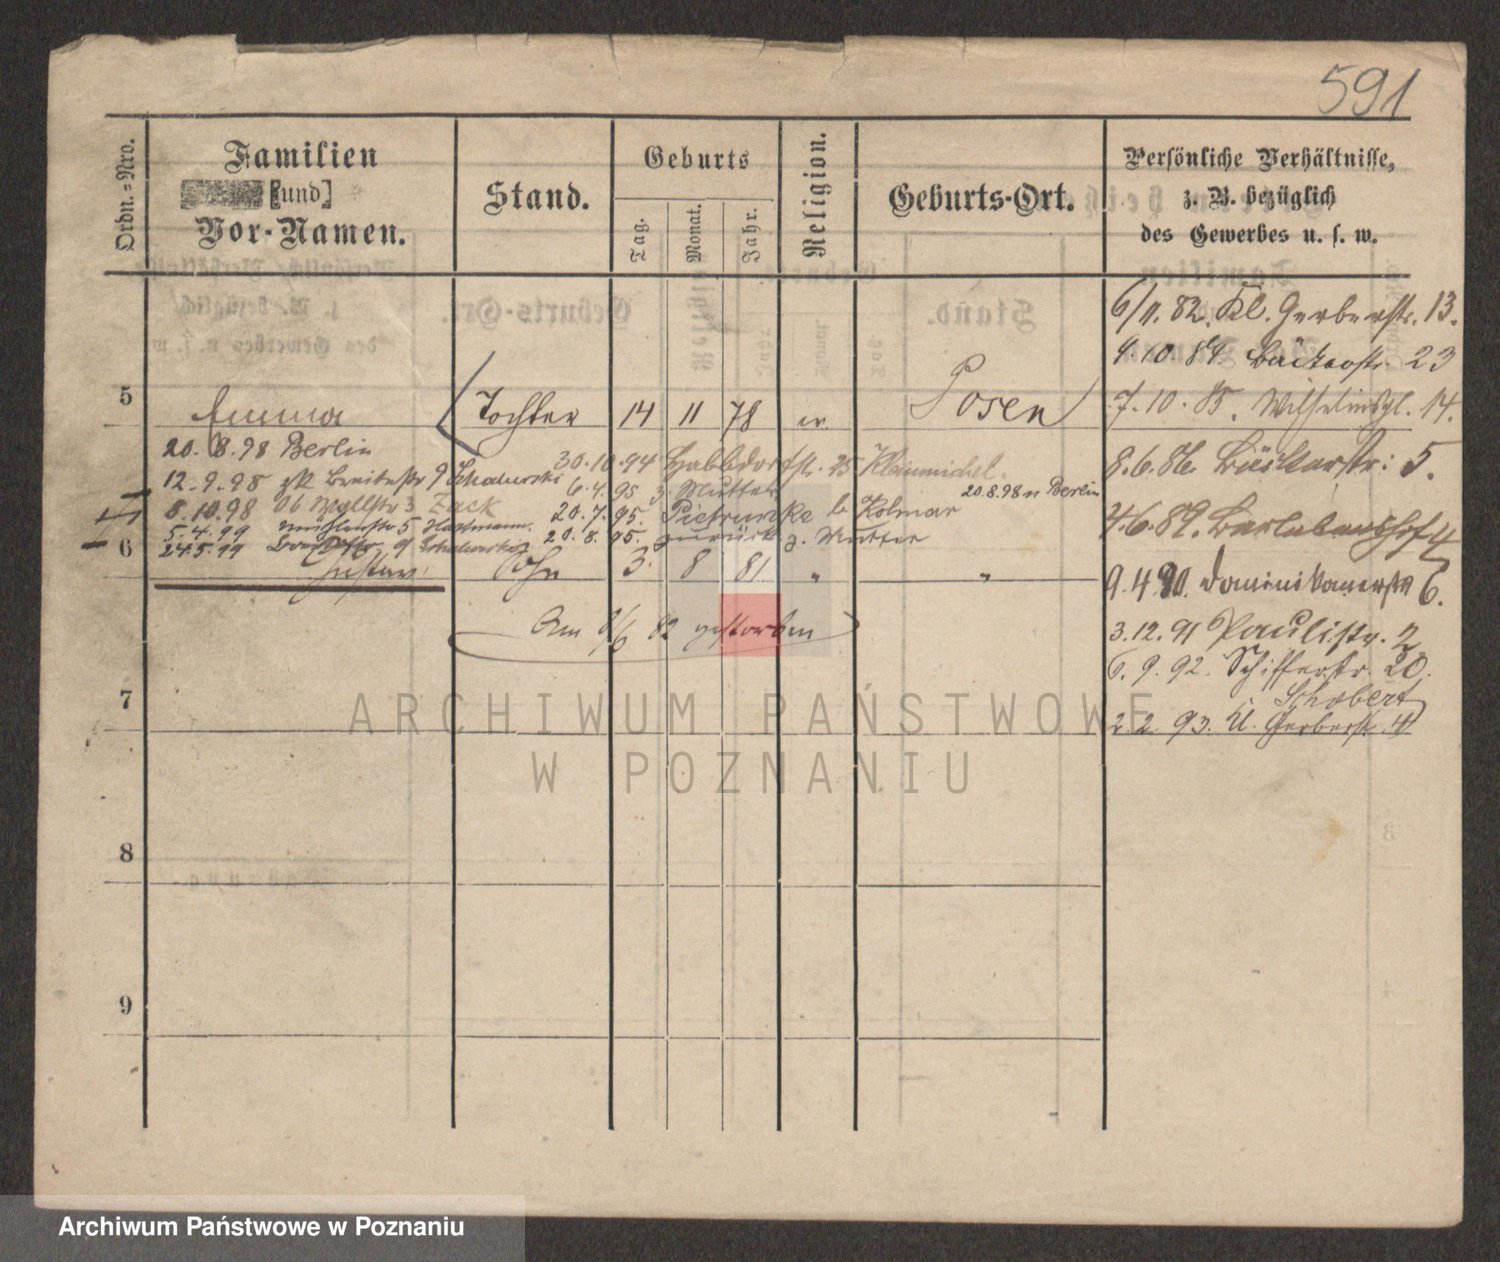 591
Ordn.=Nro.
Familien
[und]
Vor-Namen.
Stand.
Geburts
Tag.
Monat.
Jahr.
Religion.
Geburts-Ort.
Persönliche Verhältnisse,
z. B. bezüglich
des Gewerbes u. s. w.
6/11. 82. Kl. Gerberstr. 13.
4.10.84 Bäckerstr. 23
5 Emma Tochter 14 11 78 ev. Posen
7.10.85. Wilhelmspl. 14.
20.8.98 Berlin
30.10.94 Halbdorfstr. 35 Kleinmichel.
8.6.86. Bäckerstr: 5.
12.9.98 zk Breitestr 9
6.4.95 z. Mutter
20.8.98 n Berlin
8.10.98 3 Zack
20.7.95. Pietrucke b Kolmar
5.4.99 Mühlenstr 5 Hartmann.
20.8.95. zurück z. Mutter
4.6.89.
24.5.99 9
6 Gustav Sohn 3. 8 81 " "
9.4.90. Dominikanerstr 6.
Am 9/6 82 gestorben
3.12.91 Paulistr. 2
6.9.92. Schifferstr. 20.
Schobert
7
2.2.93. Kl. Gerberstr. 4
8
9
ARCHIWUM PAŃSTWOWE
W POZNANIU
Archiwum Państwowe w Poznaniu